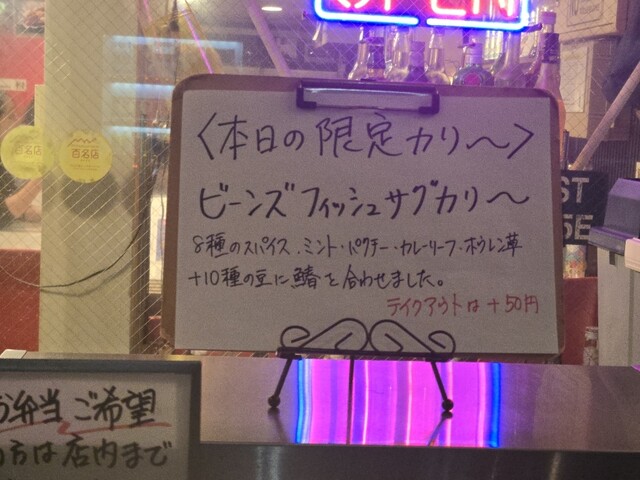 OPEN
百名店
百名店
〈本日の限定カリ〜〉
ビーンズフィッシュサグカリ〜
8種のスパイス、ミント・パクチー・カレーリーフ・ホウレン草
+10種の豆に鰆を合わせました。
テイクアウトは+50円
ST
SE
お弁当ご希望
の方は店内まで